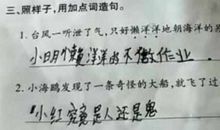 三、照样子,用加点词造句。
1. 台风一听泄了气,只好懒洋洋地朝海洋的
小明懒洋洋的不做作业.
2. 小海鸥发现了一条奇怪的大船,就飞了过
小红究竟是人还是鬼